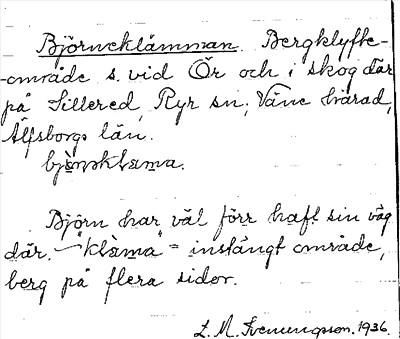 Björneklämman. Bergklyfte-
-område s. vid Ör och i skog där
på Sillered, Ryr sn, Väne härad,
Älfsborgs län.
bjö̀nəklama.
Björn har väl förr haft sin väg
där. — "klàma" = instängt område,
berg på flera sidor.
L. M. Svenungsson. 1936.